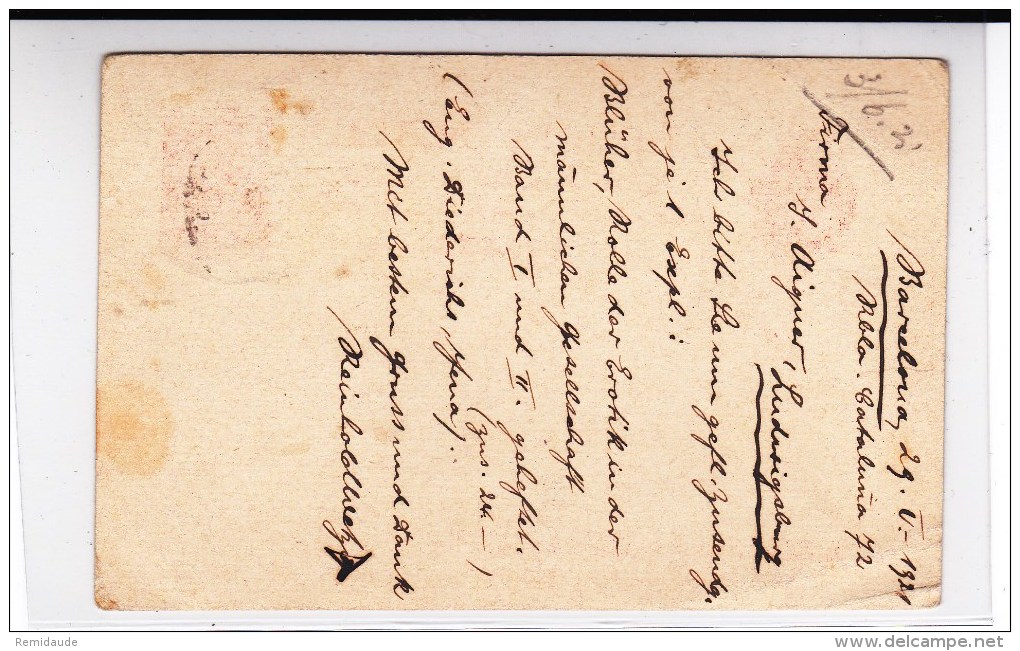 3/6. 21
Barcelona, 29. V. 1921
Rbla. Cataluña 72
Firma
J. Aigner, Ludwigsburg
Ich bitte Sie um gefl. Zusendg.
von je 1 Expl.:
Blüher, Rolle der Erotik in der
männlichen Gesellschaft
Band I und II. geheftet.
(zus. 24.–)
(Eug. Diederichs, Jena).
Mit bestem Gruss und Dank
Reinhold
Remidaude
www.delcampe.net